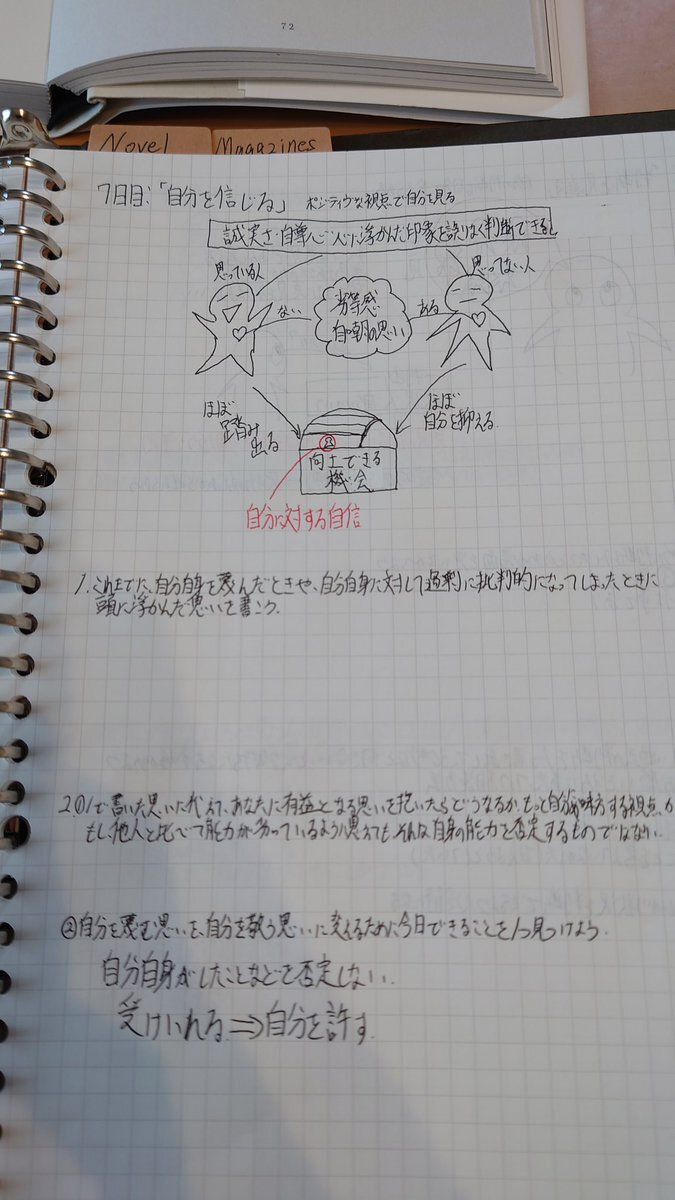 72
Novel
Magazines
7日目:「自分を信じる」 ポジティブな視点で自分を見る
誠実さ・自尊心・心に浮かんだ印象を誤りなく判断できると
思っている人
思ってない人
ない
劣等感
自嘲の思い
ある
ほぼ
踏み
出る
ほぼ
自分を抑える
向上できる
機会
自分に対する自信
1.これまでに、自分自身を蔑んだときや、自分自身に対して過剰に批判的になってしまったときに
頭に浮かんだ思いを書こう.
2.①1で書いた思いに代えて、あなたに有益となる思いを抱いたらどうなるか.もっと自分が味方する視点
もし、他人と比べて能力が劣っているよう思えても、それは自身の能力を否定するものではない.
②自分を蔑む思いを、自分を敬う思いに変えるために今日できることを1つ見つけよう.
自分自身がしたことなどを否定しない.
受けいれる.⇒自分を許す.